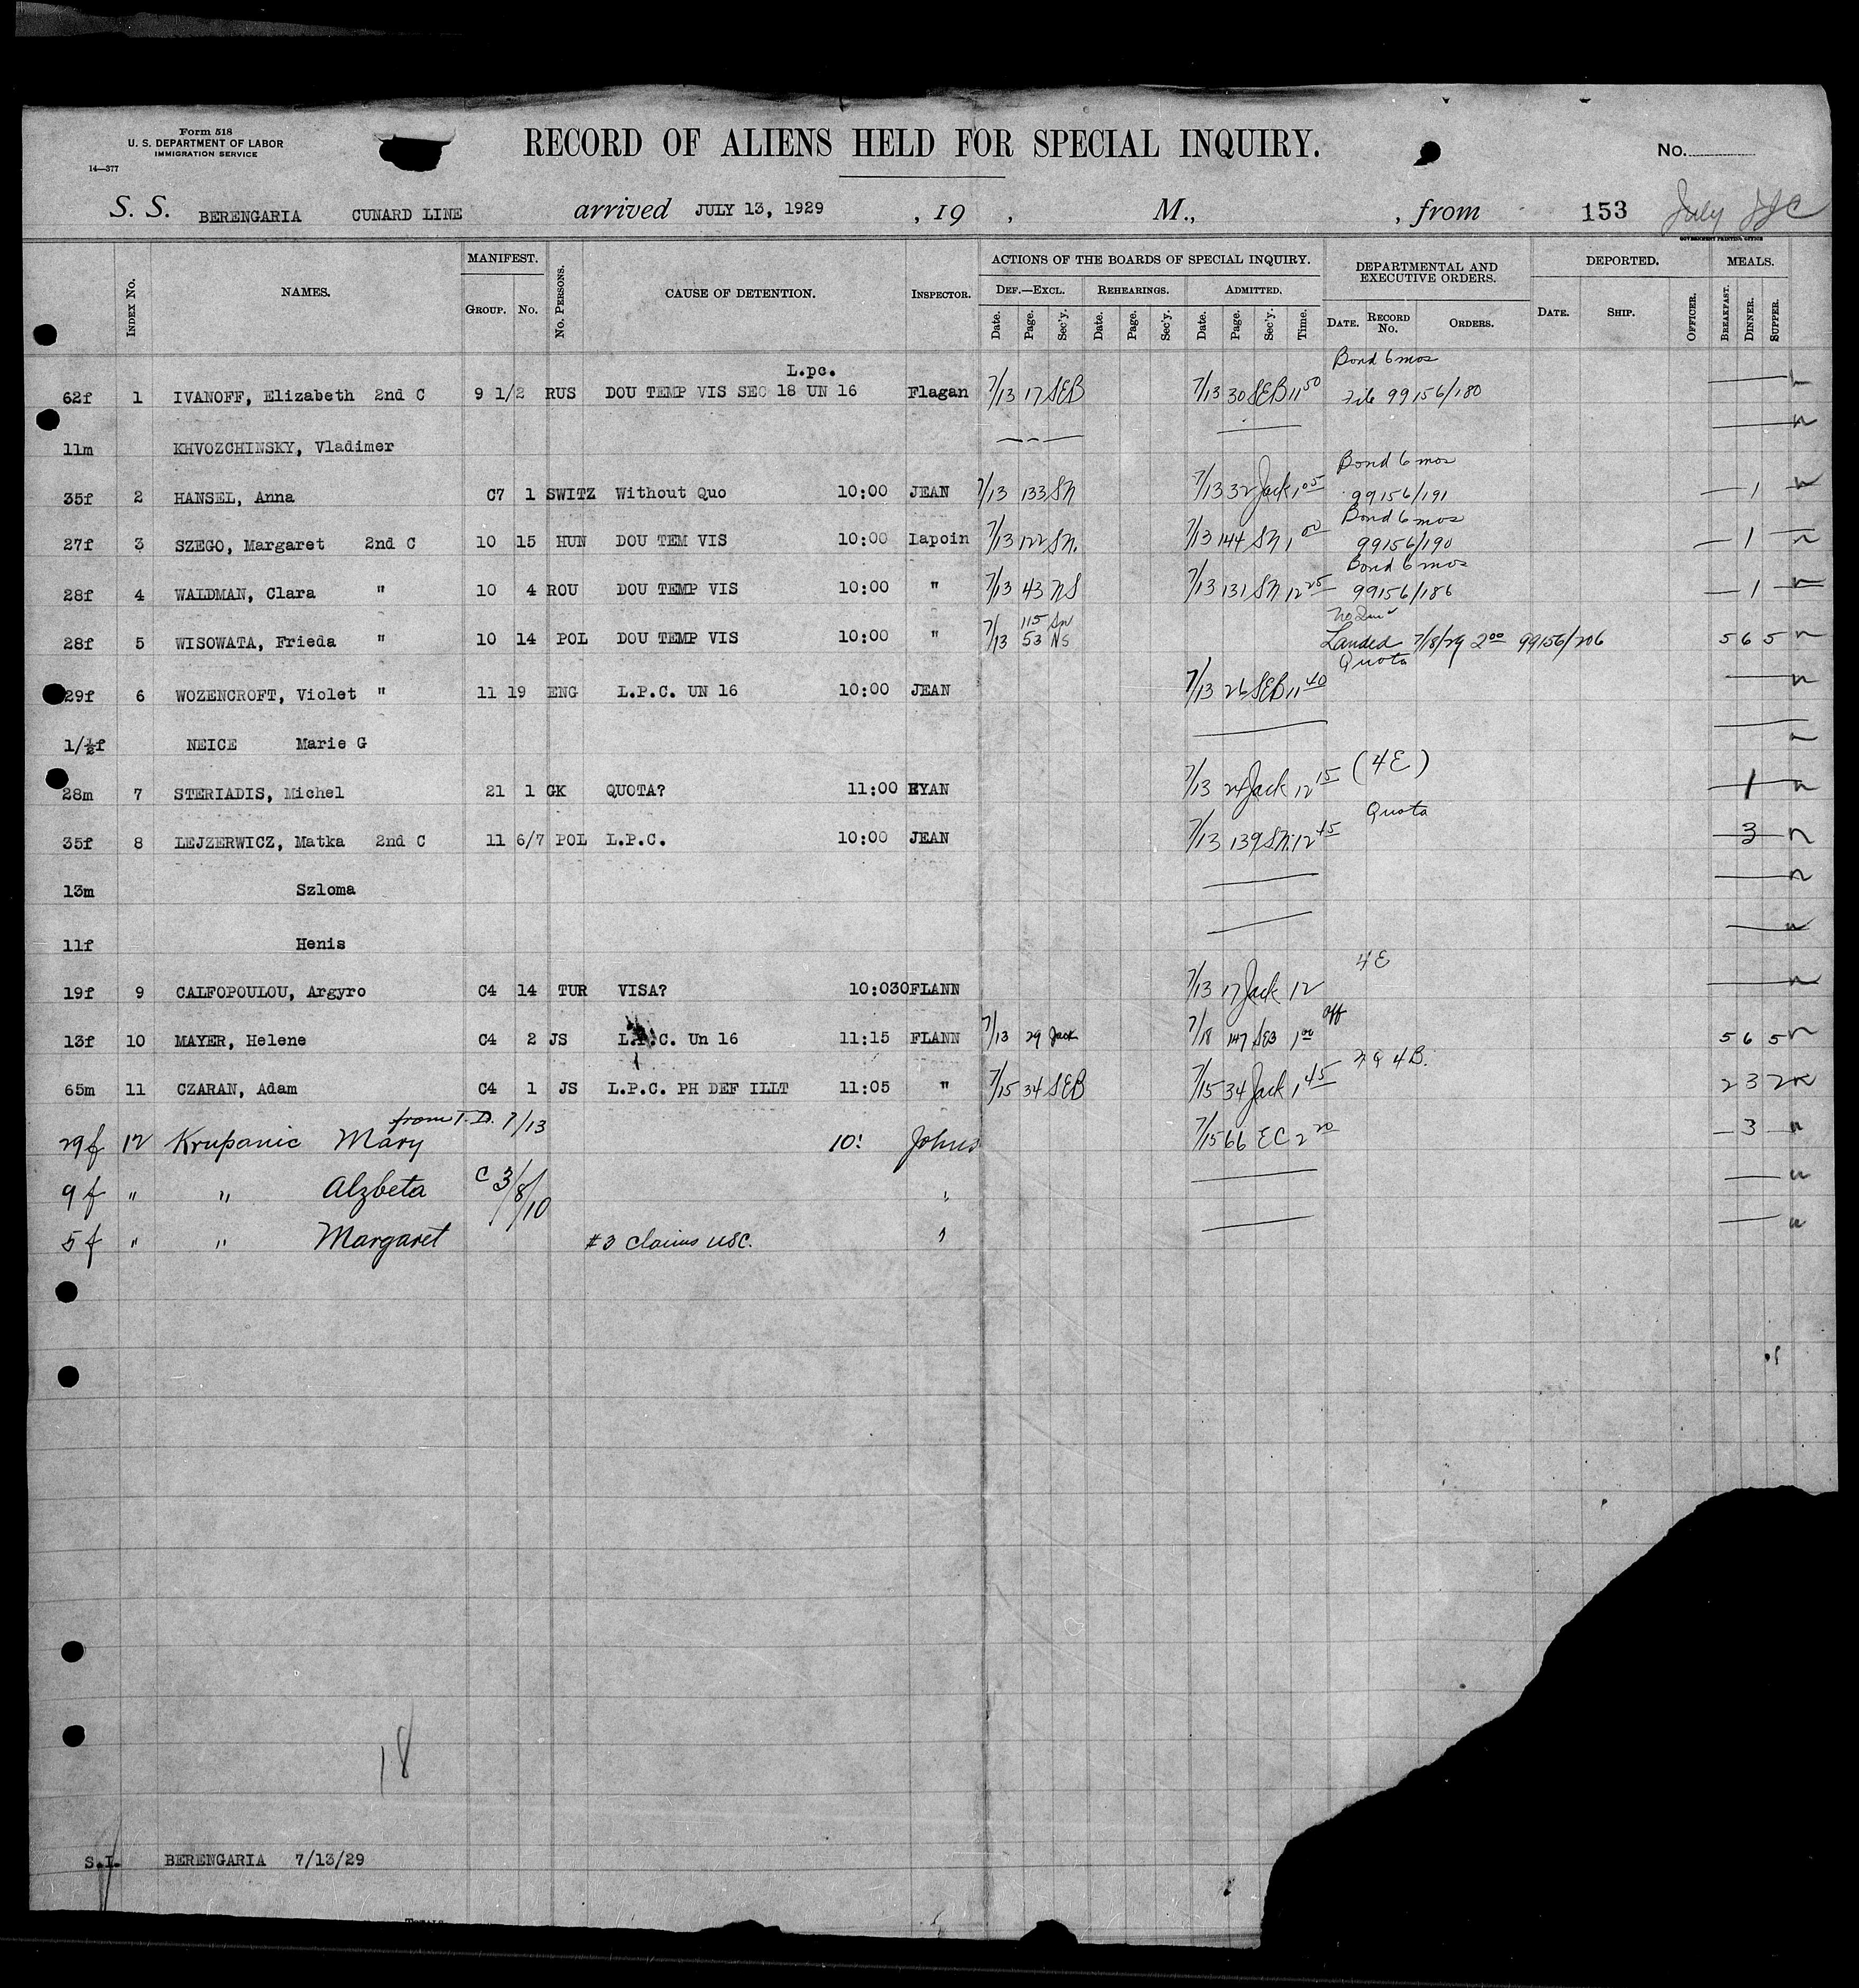 Form 518
U. S. DEPARTMENT OF LABOR
IMMIGRATION SERVICE
14—377
RECORD OF ALIENS HELD FOR SPECIAL INQUIRY.
No.
S. S. BERENGARIA CUNARD LINE arrived JULY 13, 1929 , 19 , M., , from 153 July
GOVERNMENT PRINTING OFFICE
Index No. NAMES. MANIFEST. Group. No. No. Persons. CAUSE OF DETENTION. Inspector. ACTIONS OF THE BOARDS OF SPECIAL INQUIRY. Def.—Excl. Date. Page. Sec'y. Rehearings. Date. Page. Sec'y. Admitted. Date. Page. Sec'y. Time. DEPARTMENTAL AND EXECUTIVE ORDERS. Date. Record No. Orders. DEPORTED. Date. Ship. Officer. MEALS. Breakfast. Dinner. Supper.
L.pc. Bond 6 mos
62f 1 IVANOFF, Elizabeth 2nd C 9 1/2 RUS DOU TEMP VIS SEC 18 UN 16 Flagan 7/13 17 SEB 7/13 30 SEB 11 50 File 99156/180
11m KHVOZCHINSKY, Vladimer
Bond 6 mos
35f 2 HANSEL, Anna C7 1 SWITZ Without Quo 10:00 JEAN 7/13 133 SN 7/13 32 Jack 1 05 99156/191 1
Bond 6 mos
27f 3 SZEGO, Margaret 2nd C 10 15 HUN DOU TEM VIS 10:00 Lapoin 7/13 122 SN. 7/13 144 SN 1 00 99156/190 1
Bond 6 mos
28f 4 WALDMAN, Clara " 10 4 ROU DOU TEMP VIS 10:00 " 7/13 43 NS 7/13 131 SN 12 25 99156/186 1
115 SN
28f 5 WISOWATA, Frieda " 10 14 POL DOU TEMP VIS 10:00 " 7/13 53 NS Landed 7/18/29 2 00 99156/206 5 6 5
Quota
29f 6 WOZENCROFT, Violet " 11 19 ENG L.P.C. UN 16 10:00 JEAN 7/13 26 SEB 11 40
1/½f NEICE Marie G
28m 7 STERIADIS, Michel 21 1 GK QUOTA? 11:00 RYAN 7/13 24 Jack 12 15 (4E) 1
Quota
35f 8 LEJZERWICZ, Matka 2nd C 11 6/7 POL L.P.C. 10:00 JEAN 7/13 139 SN. 12 45 3
13m Szloma
11f Henis
4E
19f 9 CALFOPOULOU, Argyro C4 14 TUR VISA? 10:030 FLANN 7/13 17 Jack 12
13f 10 MAYER, Helene C4 2 JS L.P.C. Un 16 11:15 FLANN 7/13 29 Jack 7/18 147 SEB 1 00 5 6 5
4B.
65m 11 CZARAN, Adam C4 1 JS L.P.C. PH DEF ILLT 11:05 " 7/15 34 SEB 7/15 34 Jack 1 45 2 3 2
from T.D. 7/13
29f 12 Krupanic Mary 10: Johns 7/15 66 EC 2 20 3
9f " " Alzbeta C 3/8/10 "
5f " " Margaret #3 claims USC. "
18
S.I. BERENGARIA 7/13/29